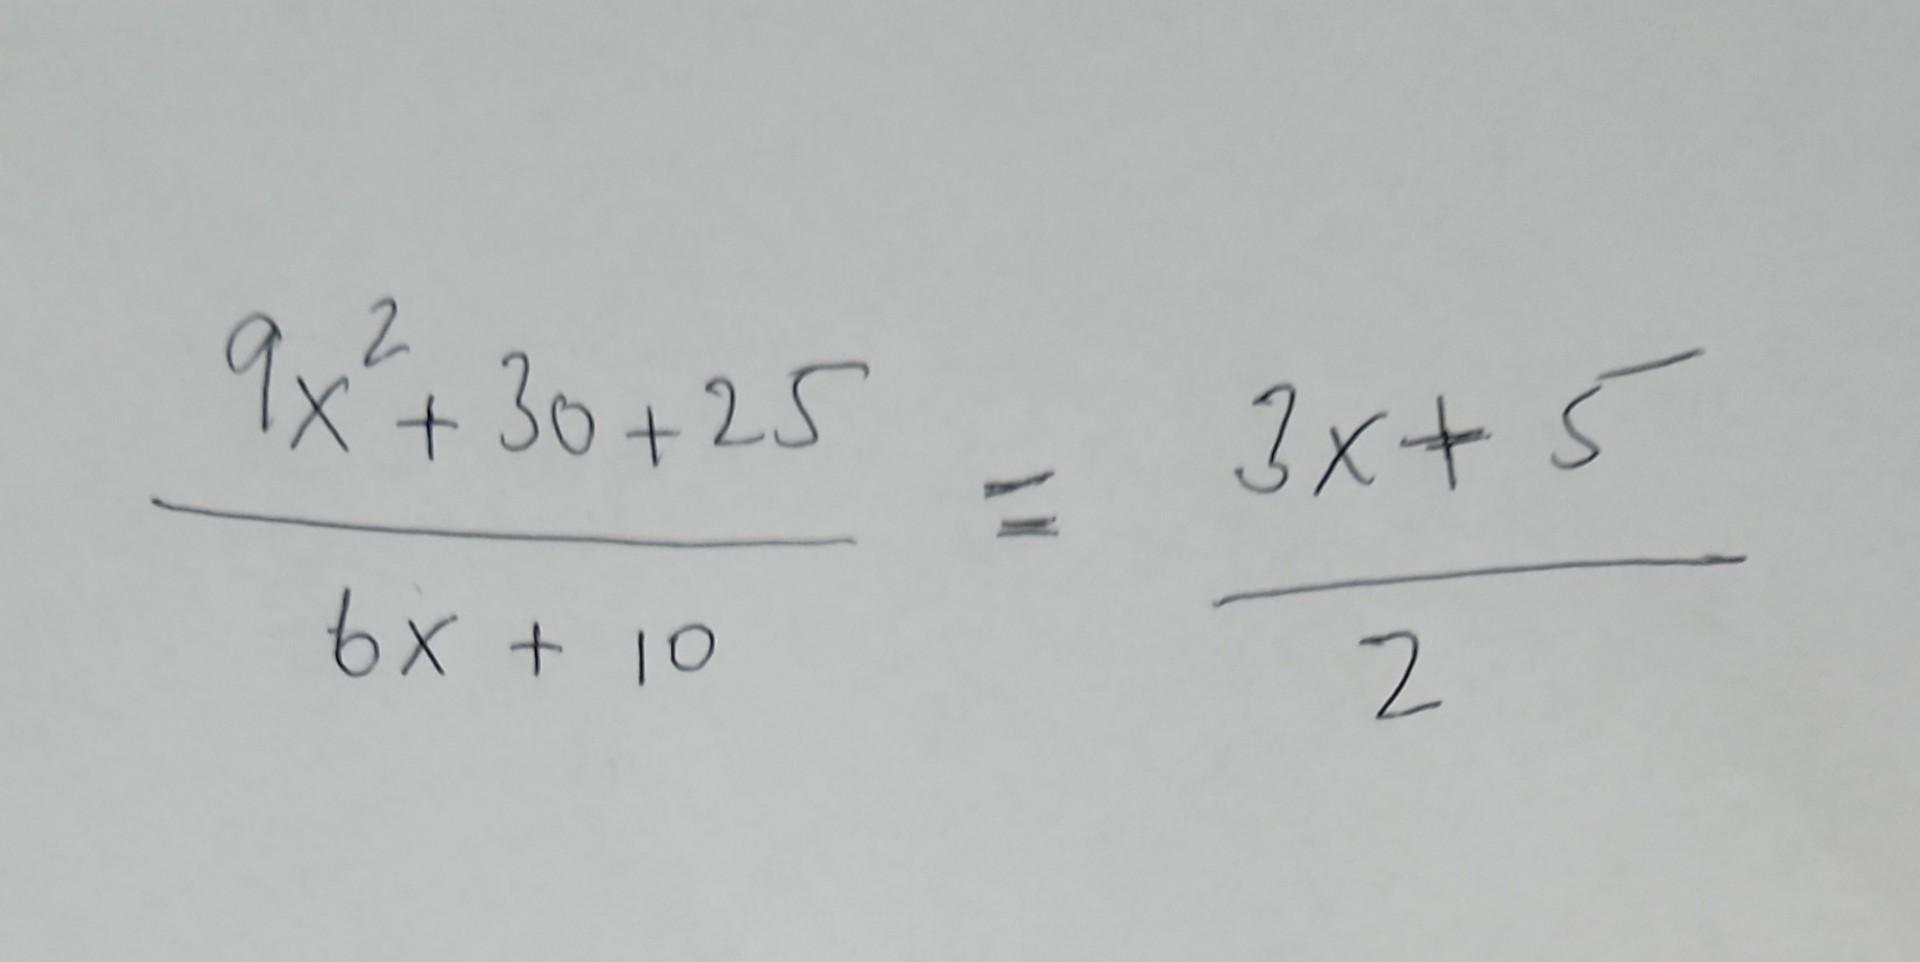 9x² + 30 + 25 / 6x + 10 = 3x + 5 / 2